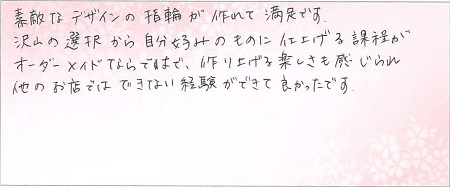 素敵なデザインの指輪が作れて満足です.
沢山の選択から自分好みのものに仕上げる課程が
オーダーメイドならではで、作り上げる楽しさも感じられ
他のお店ではできない経験ができて良かったです.